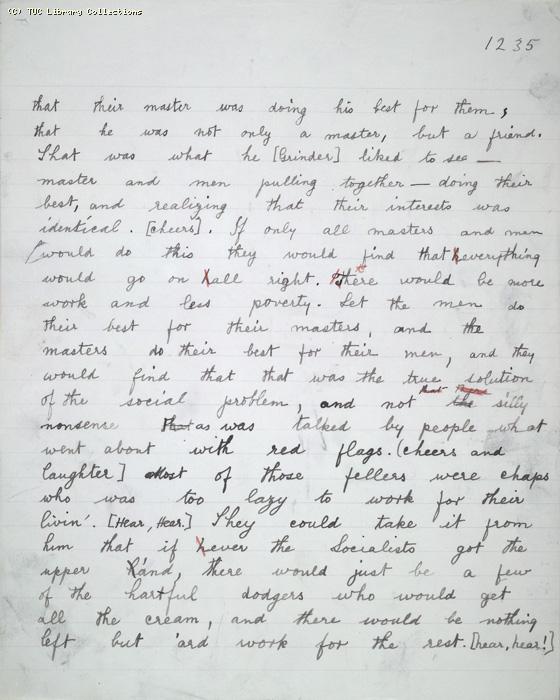 (C) TUC Library Collections
1235
that their master was doing his best for them,
that he was not only a master, but a friend.
That was what he [Grinder] liked to see —
master and men pulling together — doing their
best, and realizing that their interests was
identical. [cheers]. If only all masters and men
would do this they would find that heverything
would go on hall right. there would be more
work and less poverty. Let the men do
their best for their masters, and the
masters do their best for their men, and they
would find that that was the true solution
of the social problem, and not the that silly
nonsense that as was talked by people what
went about with red flags. (cheers and
laughter] Most of those fellers were chaps
who was too lazy to work for their
livin'. [Hear, Hear.] They could take it from
him that if hever the Socialists got the
upper hand, there would just be a few
of the hartful dodgers who would get
all the cream, and there would be nothing
left but 'ard work for the rest. [hear, hear!]